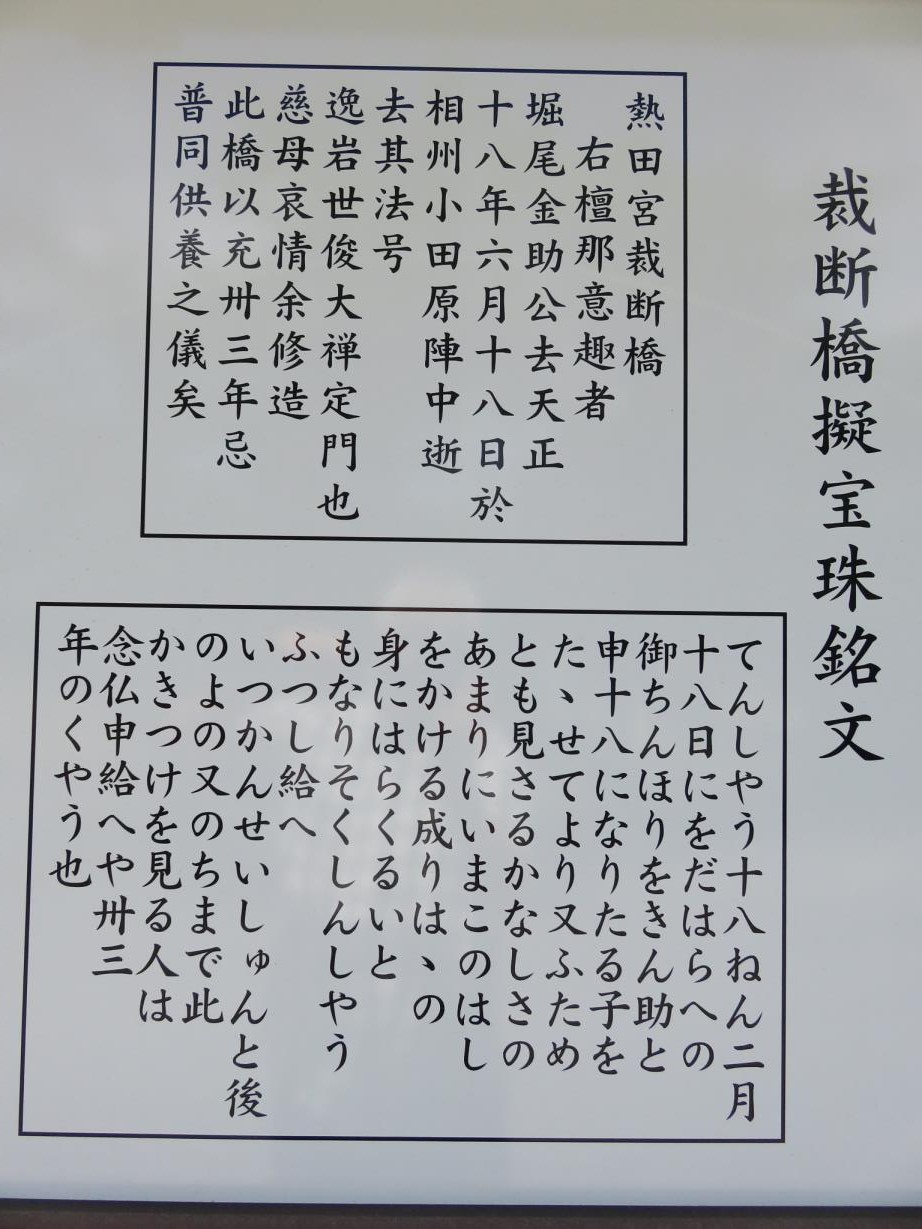 裁断橋擬宝珠銘文
熱田宮裁断橋
右檀那意趣者
堀尾金助公去天正
十八年六月十八日於
相州小田原陣中逝
去其法号
逸岩世俊大禅定門也
慈母哀情余修造
此橋以充卅三年忌
普同供養之儀矣
てんしやう十八ねん二月
十八日にをだはらへの
御ちんほりをきん助と
申十八になりたる子を
たゝせてより又ふため
とも見さるかなしさの
あまりにいまこのはし
をかける成りはゝの
身にはらくるいと
もなりそくしんしやう
ふつし給へ
いつかんせいしゅんと後
のよの又のちまで此
かきつけを見る人は
念仏申給へや卅三
年のくやう也